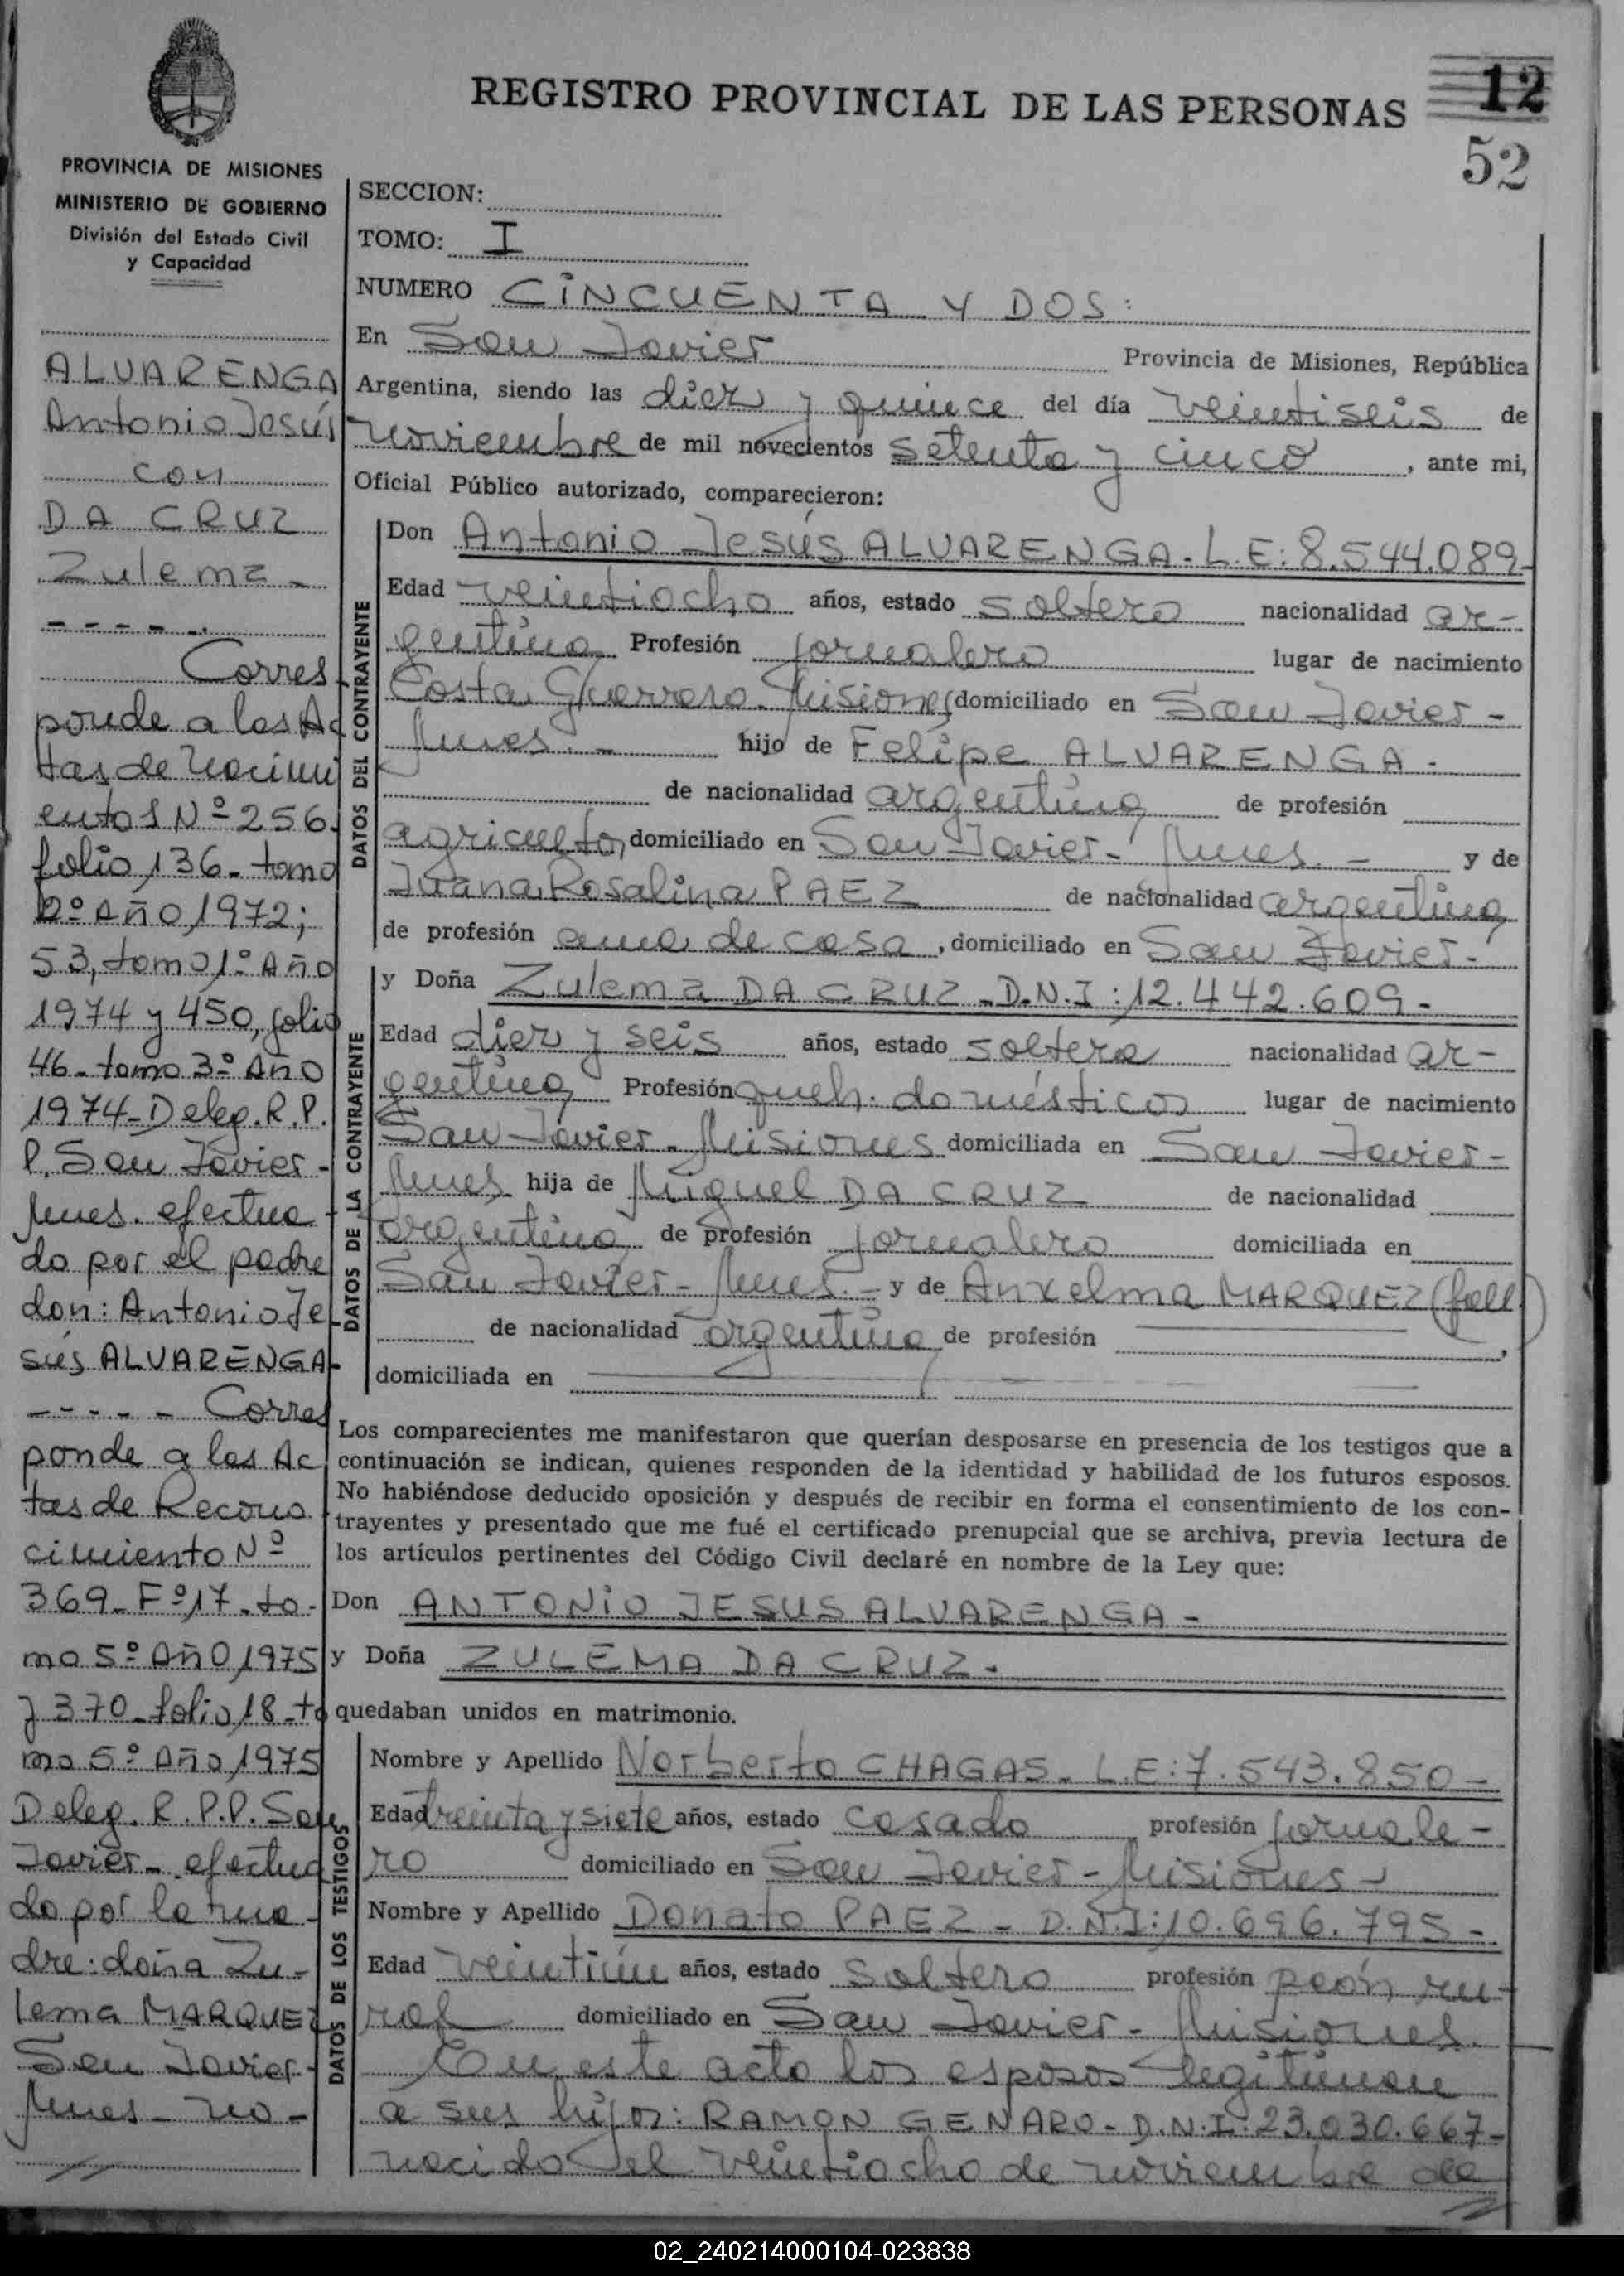 REGISTRO PROVINCIAL DE LAS PERSONAS
12
52
PROVINCIA DE MISIONES
MINISTERIO DE GOBIERNO
División del Estado Civil
y Capacidad
ALVARENGA
Antonio Jesús
con
DA CRUZ
Zulema -
- - - - -.
Corres
ponde a las Ac
tas de Nacimi
entos Nº 256.
folio, 136. tomo
2º Año, 1972;
53, tomo 1º Año
1974 y 450, folio
46. tomo 3º Año
1974 - Deleg. R. P.
P. San Javier -
Mnes. efectua
do por el padre
don: Antonio Je
sús ALVARENGA-
- - - - - Corres
ponde a las Ac
tas de Recono
cimiento Nº
369 - Fº 17 - to-
mo 5º Año, 1975
y 370 - folio, 18 - to
mo 5º Año, 1975
Deleg. R. P. P. San
Javier - efectua
do por la ma-
dre: doña Zu-
lema MARQUEZ
San Javier -
Mnes - no -
SECCION:
TOMO: I
NUMERO CINCUENTA Y DOS:
En San Javier Provincia de Misiones, República
Argentina, siendo las diez y quince del día veintiseis de
noviembre de mil novecientos setenta y cinco, ante mi,
Oficial Público autorizado, comparecieron:
DATOS DEL CONTRAYENTE
Don Antonio Jesús ALVARENGA - L.E: 8.544.089-
Edad veintiocho años, estado soltero nacionalidad ar-
gentina Profesión jornalero lugar de nacimiento
Costa Guerrero. Misiones domiciliado en San Javier -
Mnes. - hijo de Felipe ALVARENGA -
de nacionalidad argentina de profesión
agricultor, domiciliado en San Javier - Mnes. - y de
Juana Rosalina PAEZ de nacionalidad argentina,
de profesión ama de casa, domiciliado en San Javier -
DATOS DE LA CONTRAYENTE
y Doña Zulema DA CRUZ - D.N.I: 12.442.609 -
Edad diez y seis años, estado soltera nacionalidad ar-
gentina, Profesión queh. domésticos lugar de nacimiento
San Javier - Misiones domiciliada en San Javier -
Mnes hija de Miguel DA CRUZ de nacionalidad
argentina, de profesión jornalero domiciliada en
San Javier - Mnes. - y de Anxelma MARQUEZ (fall)
de nacionalidad argentina de profesión ,
domiciliada en
Los comparecientes me manifestaron que querían desposarse en presencia de los testigos que a
continuación se indican, quienes responden de la identidad y habilidad de los futuros esposos.
No habiéndose deducido oposición y después de recibir en forma el consentimiento de los con-
trayentes y presentado que me fué el certificado prenupcial que se archiva, previa lectura de
los artículos pertinentes del Código Civil declaré en nombre de la Ley que:
Don ANTONIO JESUS ALVARENGA -
y Doña ZULEMA DA CRUZ -
quedaban unidos en matrimonio.
DATOS DE LOS TESTIGOS
Nombre y Apellido Norberto CHAGAS - L.E: 7.543.850 -
Edad treinta y siete años, estado casado profesión jornale-
ro domiciliado en San Javier - Misiones -
Nombre y Apellido Donato PAEZ - D.N.I: 10.696.795 -
Edad veintiún años, estado soltero profesión peón ru-
ral domiciliado en San Javier - Misiones.
En este acto los esposos legitiman
a sus hijos: RAMON GENARO - D.N.I: 23.030.667 -
nacido el veintiocho de noviembre de
02_240214000104-023838